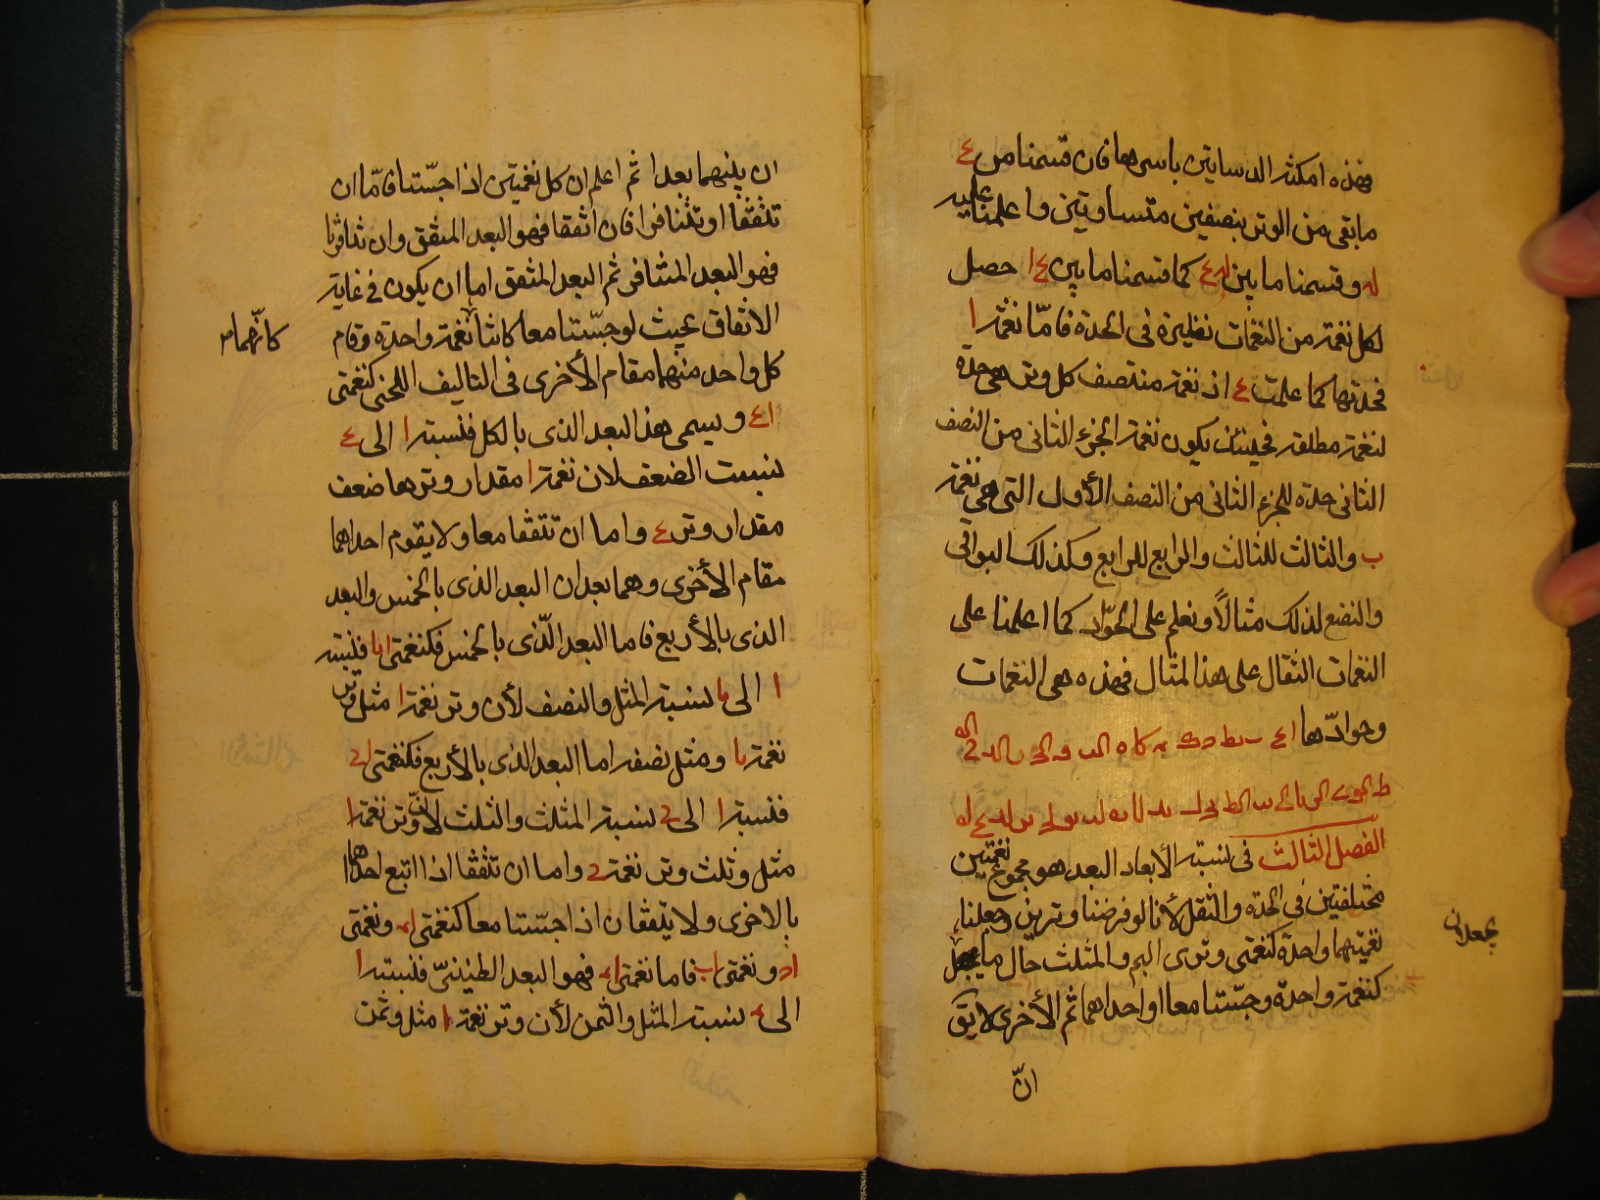 فهذه امكنة الدساتين باسرها فان قسمنا من ع
ما بقى من الوتر بنصفين متساويتين واعلمنا عليه
له وقسمنا ما بين له ع كما قسمنا ما بين ع ا حصل
لكل نغمة من النغمات نظيرة فى الحدة فامّا نغمة ا
فحدتها كما علمت ع اذ نغمة منتصف كل وتر هى حدة
لنغمة مطلقه فحينئذ يكون نغمة الجزء الثانى من النصف
الثانى حدة للجزء الثانى من النصف الأول التى هى نغمة
ب والثالث للثالث والرابع للرابع وكذلك البواقى
والنضع لذلك مثالاً ونعلم على الحوادّ كما اعلمنا على
النغمات الثقال على هذا المثال فهذه هى النغمات
وحوادّها
الفصل الثالث فى نسبة الأبعاد البعد هو مجموع نغمتين
مختلفتين فى الحدة والثقل لأنا لو فرضنا وترين وجعلنا
نغمتهما واحدة كنغمتى وترى البم والمثلث حال ما يجعل
كنغمة واحدة وجسّتا معا او احداهما ثم الأخرى لا يق
انّ
يجعلان
ان بينهما بعدا ثم اعلم ان كل نغمتين اذا جسّتا فامّا ان
تتفقا او تتنافرا فان اتفقا فهو البعد المتفق وان تنافرتا
فهو البعد المتنافر ثم البعد المتفق اما ان يكون فى غاية
الاتفاق بحيث لو جسّتا معا كانتا نغمة واحدة وقام
كانّهما
كل واحد منهما مقام الأخرى فى التاليف اللحنى كنغمتى
ا ع ويسمى هذا البعد الذى بالكل فنسبة ا الى ع
نسبت الضعف لان نغمة ا مقدار وترها ضعف
مقدار وتر ع واما ان تتفقا معا ولا يقوم احداهما
مقام الأخرى وهما بعدان البعد الذى بالخمس والبعد
الذى بالأربع فاما البعد الّذى بالخمس فكنغمتى ا يا فنسبة
ا الى يا نسبة المثل والنصف لأن وتر نغمة ا مثل وتر
نغمة يا ومثل نصفه اما البعد الذى بالأربع فكنغمتى ا ح
فنسبة ا الى ح نسبة المثلث والثلث لانّ وتر نغمة ا
مثل وثلث وتر نغمة ح واما ان تتفقا اذا اتبع احداهما
بالاخرى ولا يتفقان اذا جسّتا معا كنغمتى ا د ونغمتى
ا ج ونغمتى ا ب فاما نغمتى ا د فهو البعد الطنينىّ فنسبة ا
الى د نسبة المثل والثمن لأن وتر نغمة ا مثل وثمن